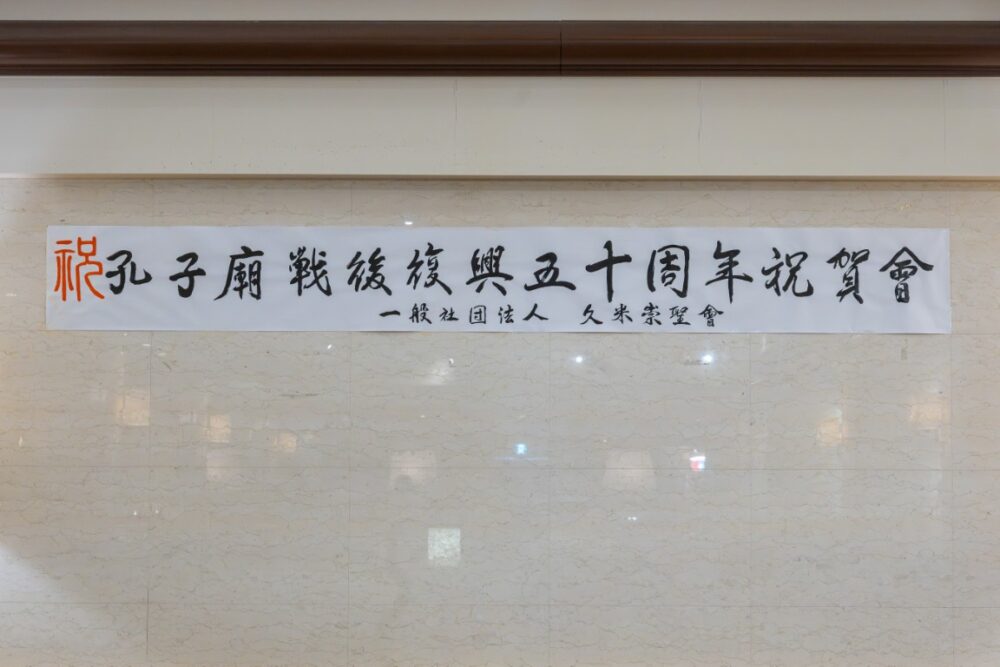 祝孔子廟戦後復興五十周年祝賀會
一般社団法人 久米崇聖會